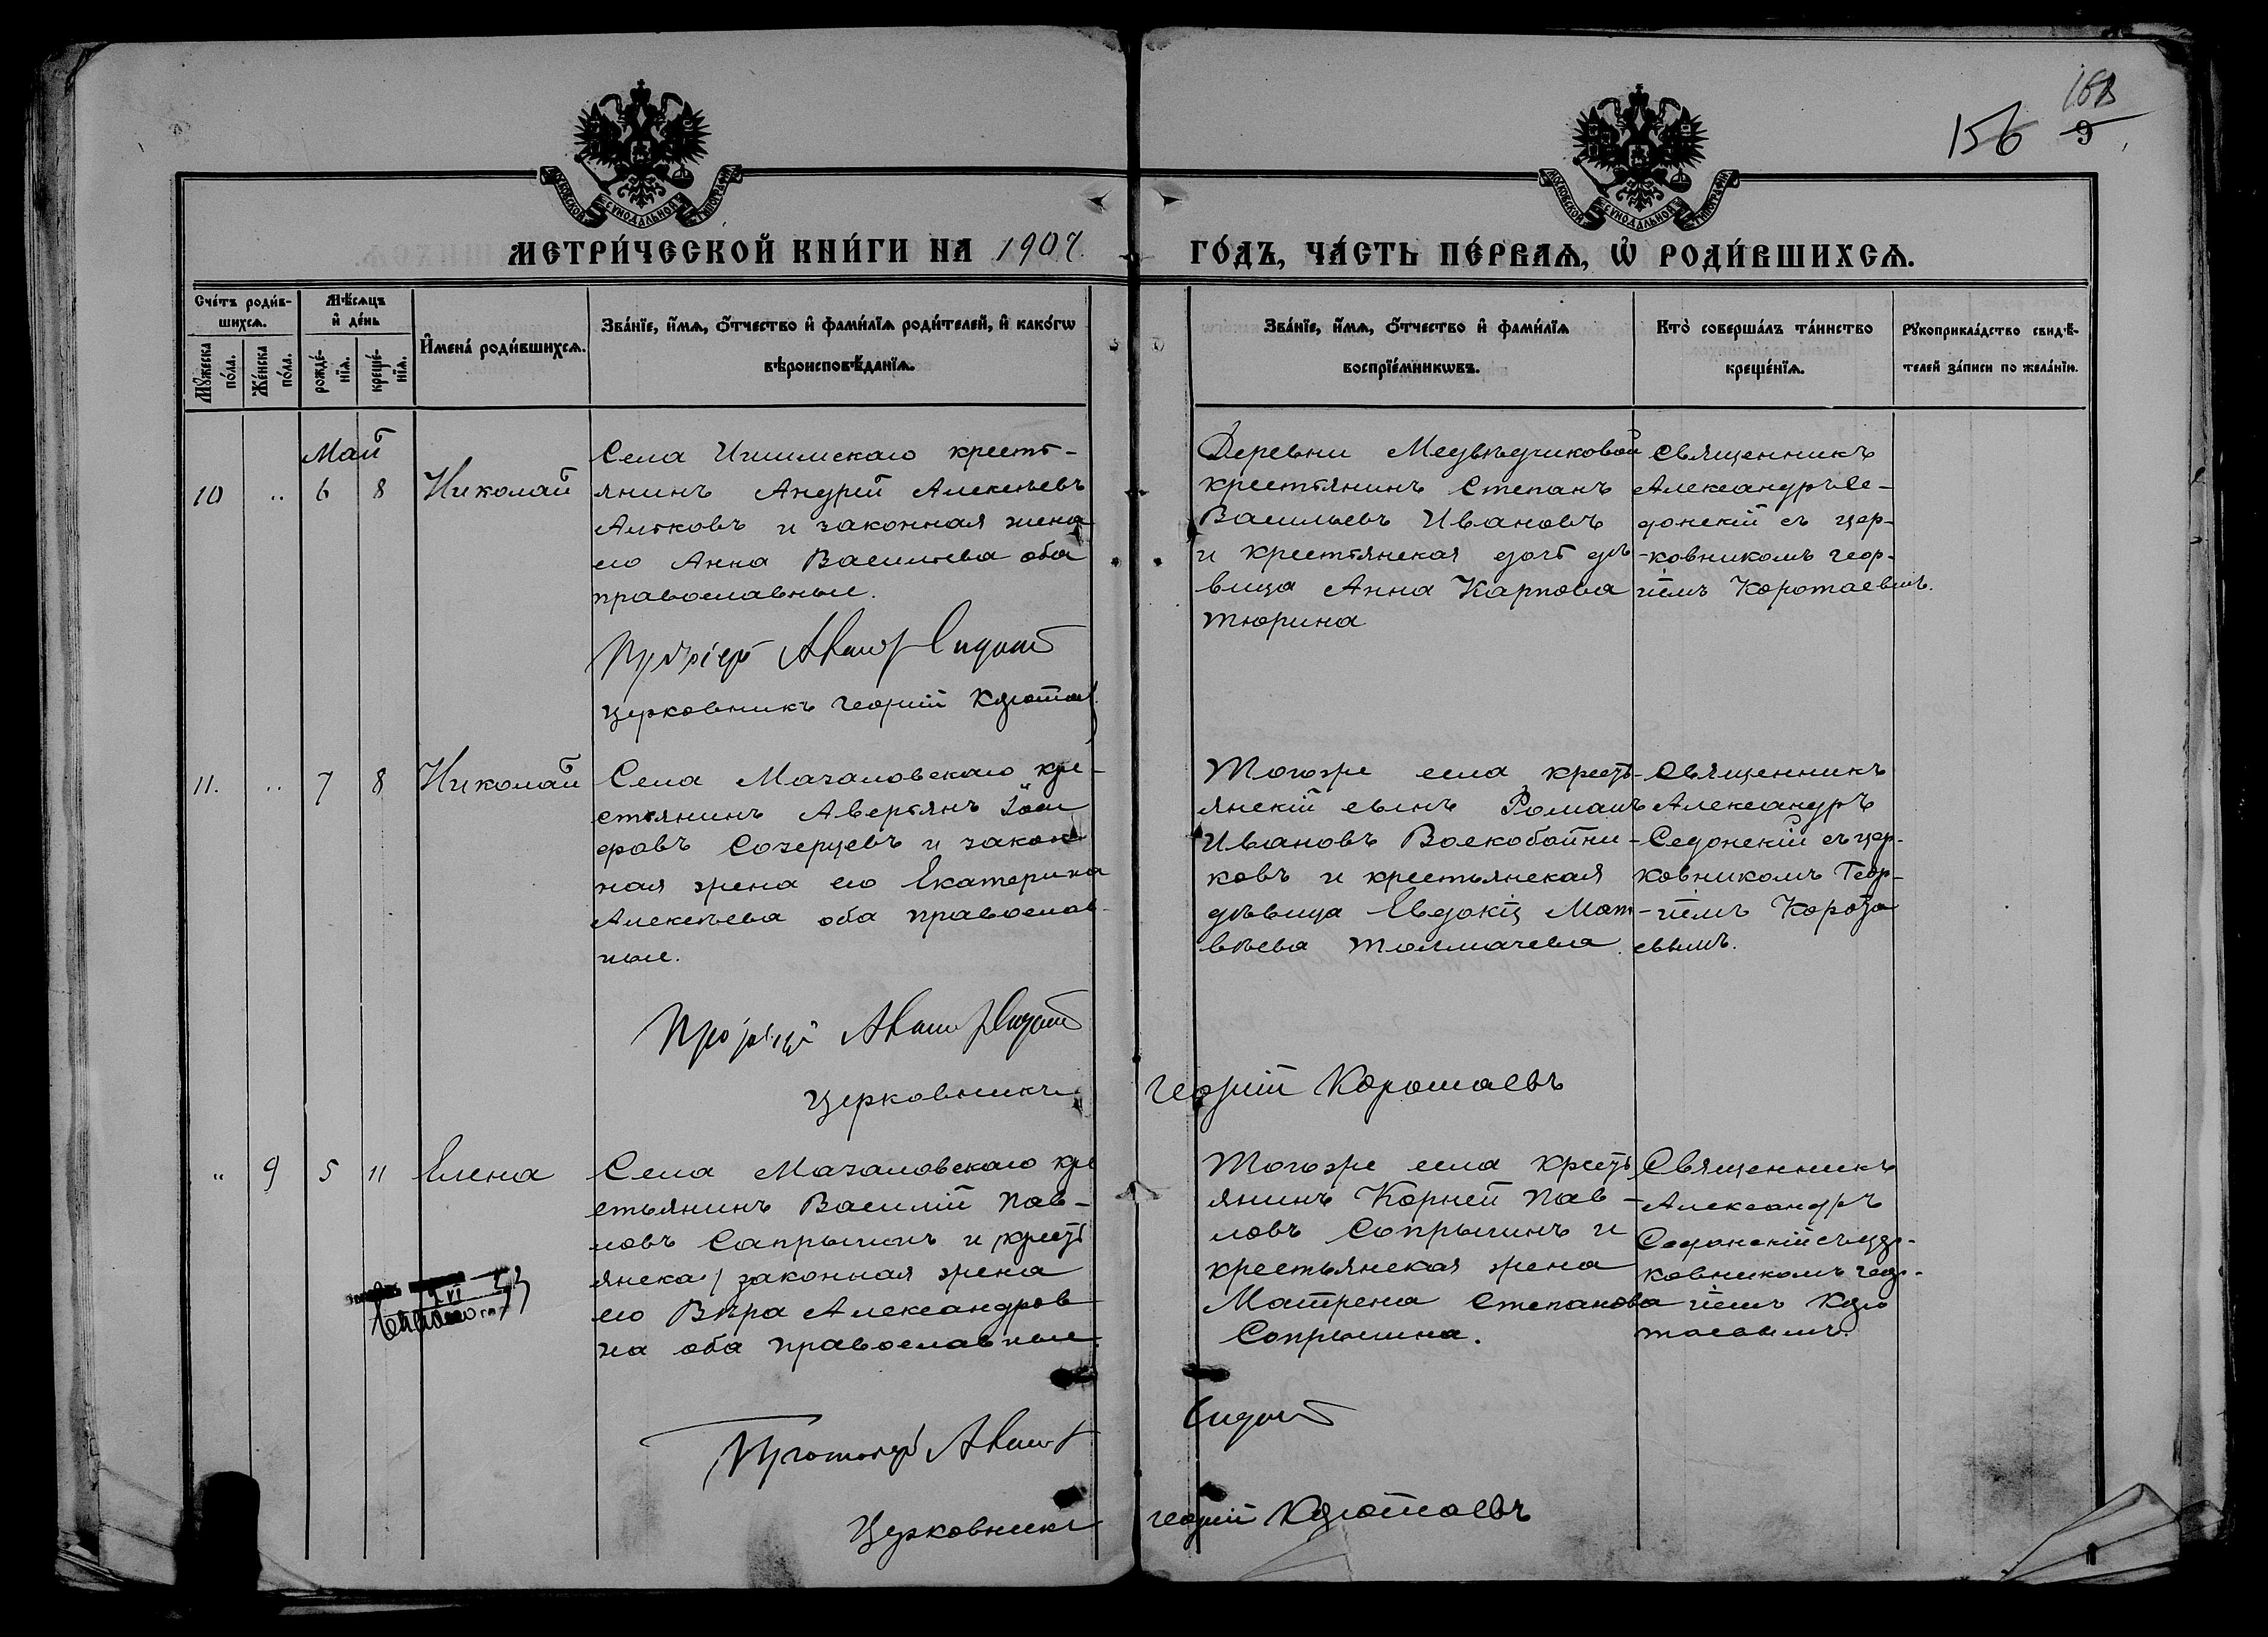 156
9
МОСКОВСКОЙ СУНОДАЛЬНОЙ ТИПОГРАФІИ
МОСКОВСКОЙ СУНОДАЛЬНОЙ ТИПОГРАФІИ
МЕТРИ́ЧЕСКОЙ КНИ́ГИ НА 1907.
ГО́ДЪ, ЧА́СТЬ ПЕ́РВАѦ, Ѽ РОДИ́ВШИХСѦ.
Сче́тъ роди́в-
шихсѧ.
Мꙋ́жеска
по́ла.
Же́нска
по́ла.
Мѣ́сѧцъ
и҆ де́нь
рожде́-
нїѧ.
креще́-
нїѧ.
И҆мена̀ роди́вшихсѧ.
Зва́нїе, и҆́мѧ, ѻ҆́тчество и҆ фами́лїѧ роди́телей, и҆ како́гѡ
вѣроисповѣ́данїѧ.
Зва́нїе, и҆́мѧ, ѻ҆́тчество и҆ фами́лїѧ
воспрїе́мникѡвъ.
Кто̀ соверша́лъ та́инство
креще́нїѧ.
Рꙋкоприкла́дство свидѣ́-
телей за́писи по жела́нїю.
Май
10 „ 6 8 Николай
Села крестъ-
янинъ Андрей Алексѣевъ
и законная жена
его Анна Васильева оба
православные.
Церковникъ Георгій
Деревни Медвѣдчиковой
крестьянинъ Степанъ
Васильевъ Ивановъ
и крестьянская дочь дѣ-
вица Анна Карпова
Тюрина
Священникъ
Александръ Се-
донскій съ цер-
ковникомъ Геор-
гіемъ Коротаевымъ.
11. „ 7 8 Николай
Села Мачаловскаго кре-
стьянинъ Аверьянъ Іоси
фовъ Созерцевъ и закон
ная жена его Екатерина
Алексѣева оба православ
ные.
Церковникъ Георгій Коротаевъ
Тогоже села кресть-
янскій сынъ Романъ
Ивановъ Воскобойни-
ковъ и крестьянская
дѣвица Евдокія Мат-
вѣева Толмачева.
Священникъ
Александръ
Седонскій съ цер-
ковникомъ Геор-
гіемъ Корота
евымъ.
„ 9 5 11 Елена
Села Мачаловскаго кре
стьянинъ Василій Пав-
ловъ Сапрыкинъ и крестъ
янска, законная жена
его Вѣра Александров
на оба православные.
Протоіерей
Церковникъ Георгій Коротаевъ
Тогоже села крестъ
янинъ Корней Пав-
ловъ Сопрыкинъ и
крестьянская жена
Матрена Степанова
Сопрыкина.
Священникъ
Александръ
Седонскій съ цер-
ковникомъ Геор-
гіемъ Коро
таевымъ.